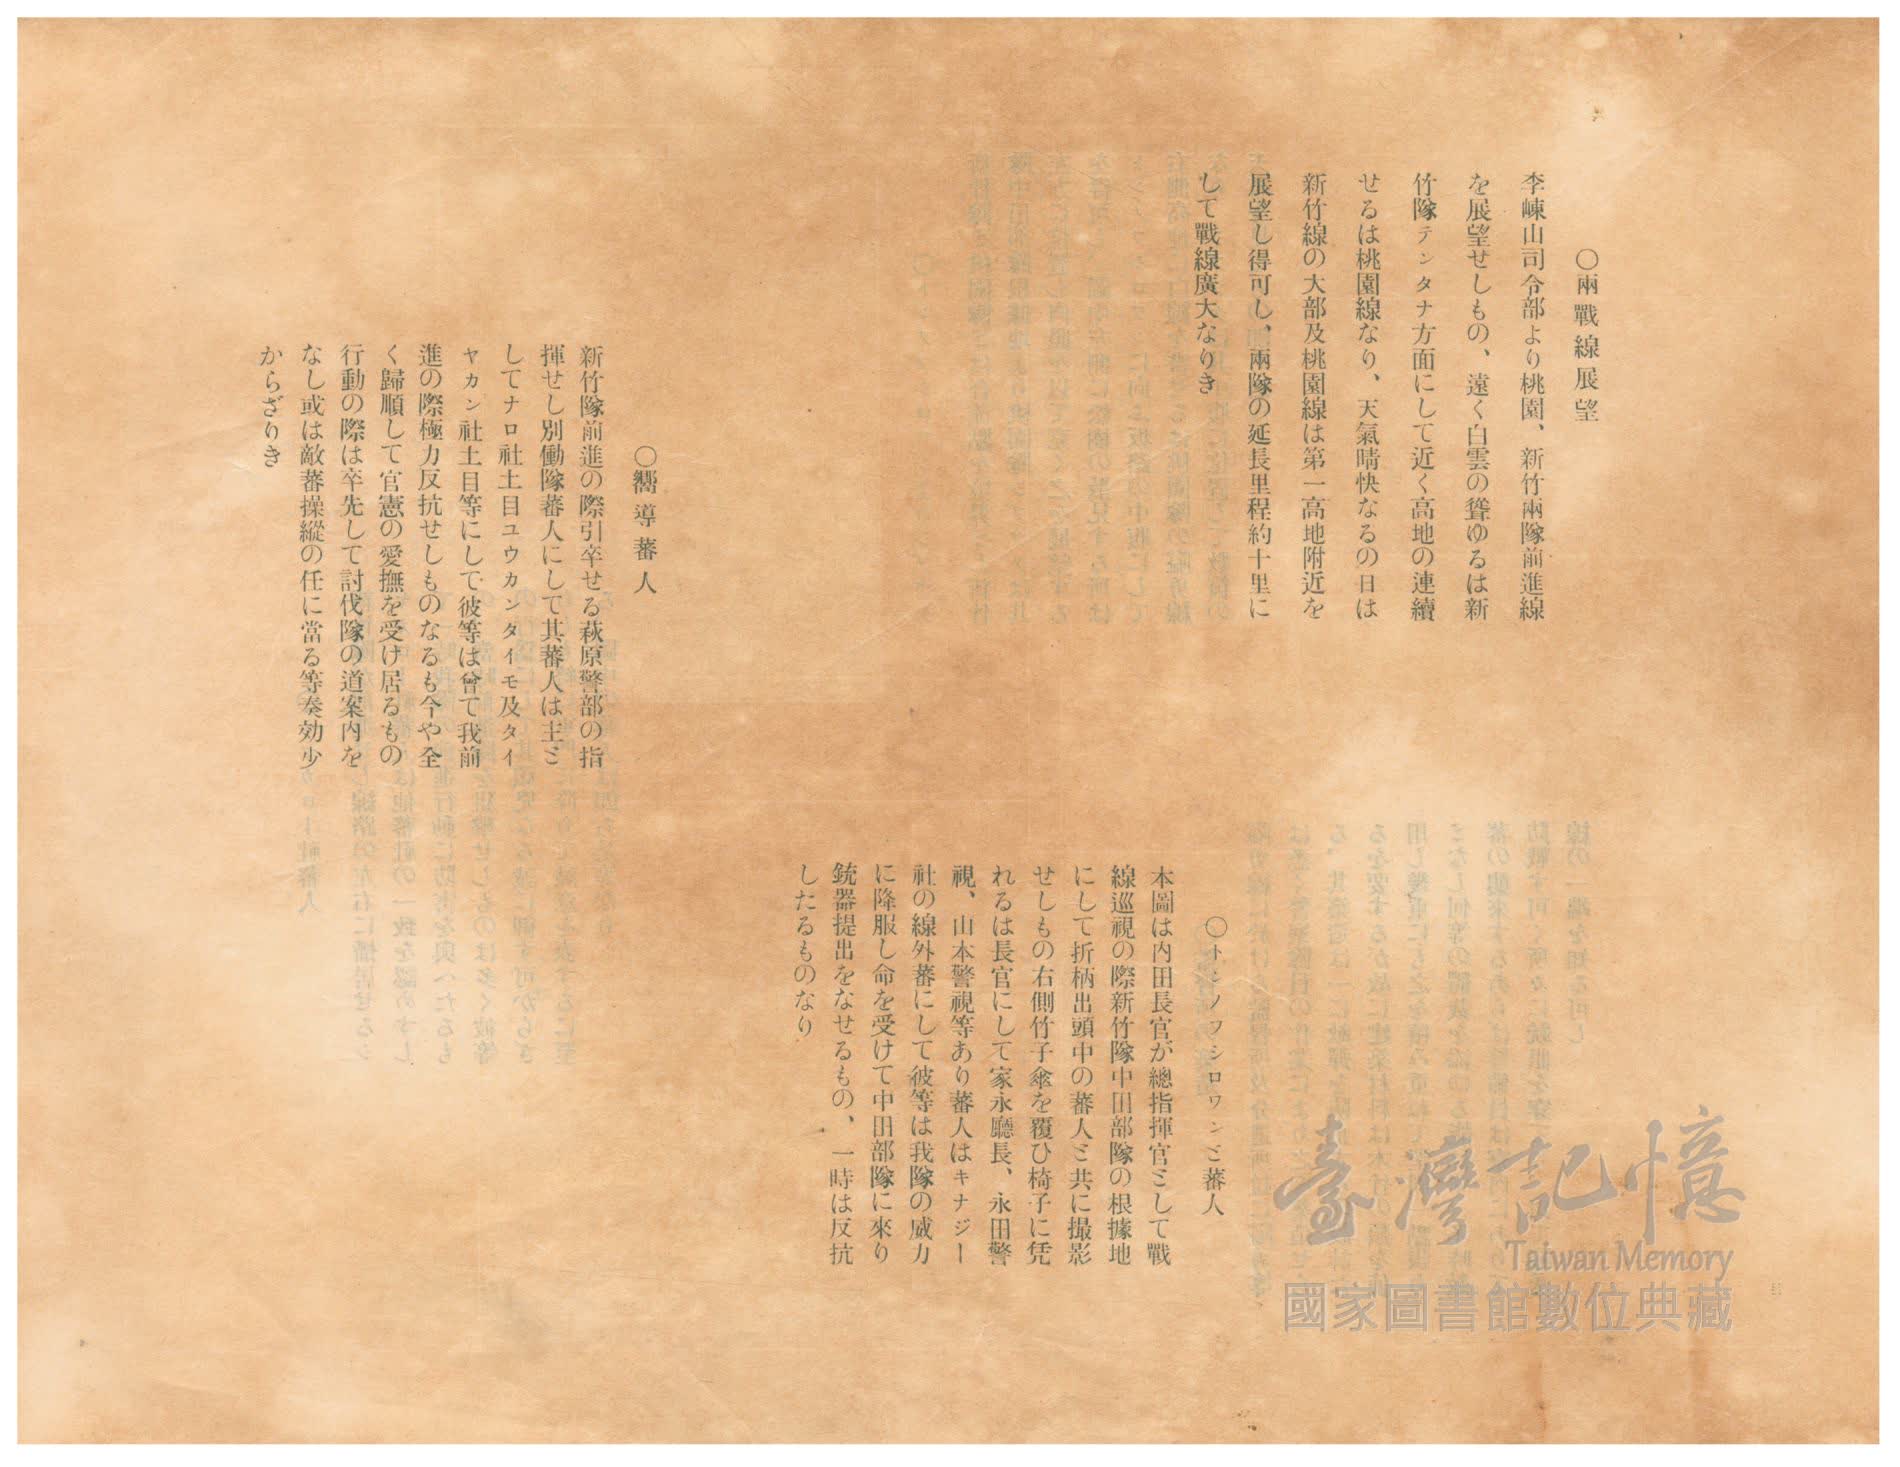 ○兩戰線展望
李崠山司令部より桃園、新竹兩隊前進線
を展望せしもの、遠く白雲の聳ゆるは新
竹隊テンタナ方面にして近く高地の連續
せるは桃園線なり、天氣晴快なるの日は
新竹線の大部及桃園線は第一高地附近を
展望し得可し、兩隊の延長里程約十里に
して戰線廣大なりき
○嚮導蕃人
新竹隊前進の際引卒せる萩原警部の指
揮せし別働隊蕃人にして其蕃人は主ミ
してナロ社土目ユウカンタイモ及タイ
ヤカン社土目等にして彼等は曾て我前
進の際極力反抗せしものなるも今や全
く歸順して官憲の愛撫を受け居るもの
行動の際は卒先して討伐隊の道案内を
なし或は敵蕃操縱の任に當る等奏効少
からざりき
○トンノフシロワンミ蕃人
本圖は内田長官が總指揮官ミして戰
線巡視の際新竹隊中田部隊の根據地
にして折柄出頭中の蕃人ミ共に撮影
せしもの右側竹子傘を覆ひ椅子に凭
れるは長官にして家永廳長、永田警
視、山本警視等あり蕃人はキナジー
社の線外蕃にして彼等は我隊の威力
に降服し命を受けて中田部隊に來り
銃器提出をなせるもの、一時は反抗
したるものなり
臺灣記憶
Taiwan Memory
國家圖書館數位典藏